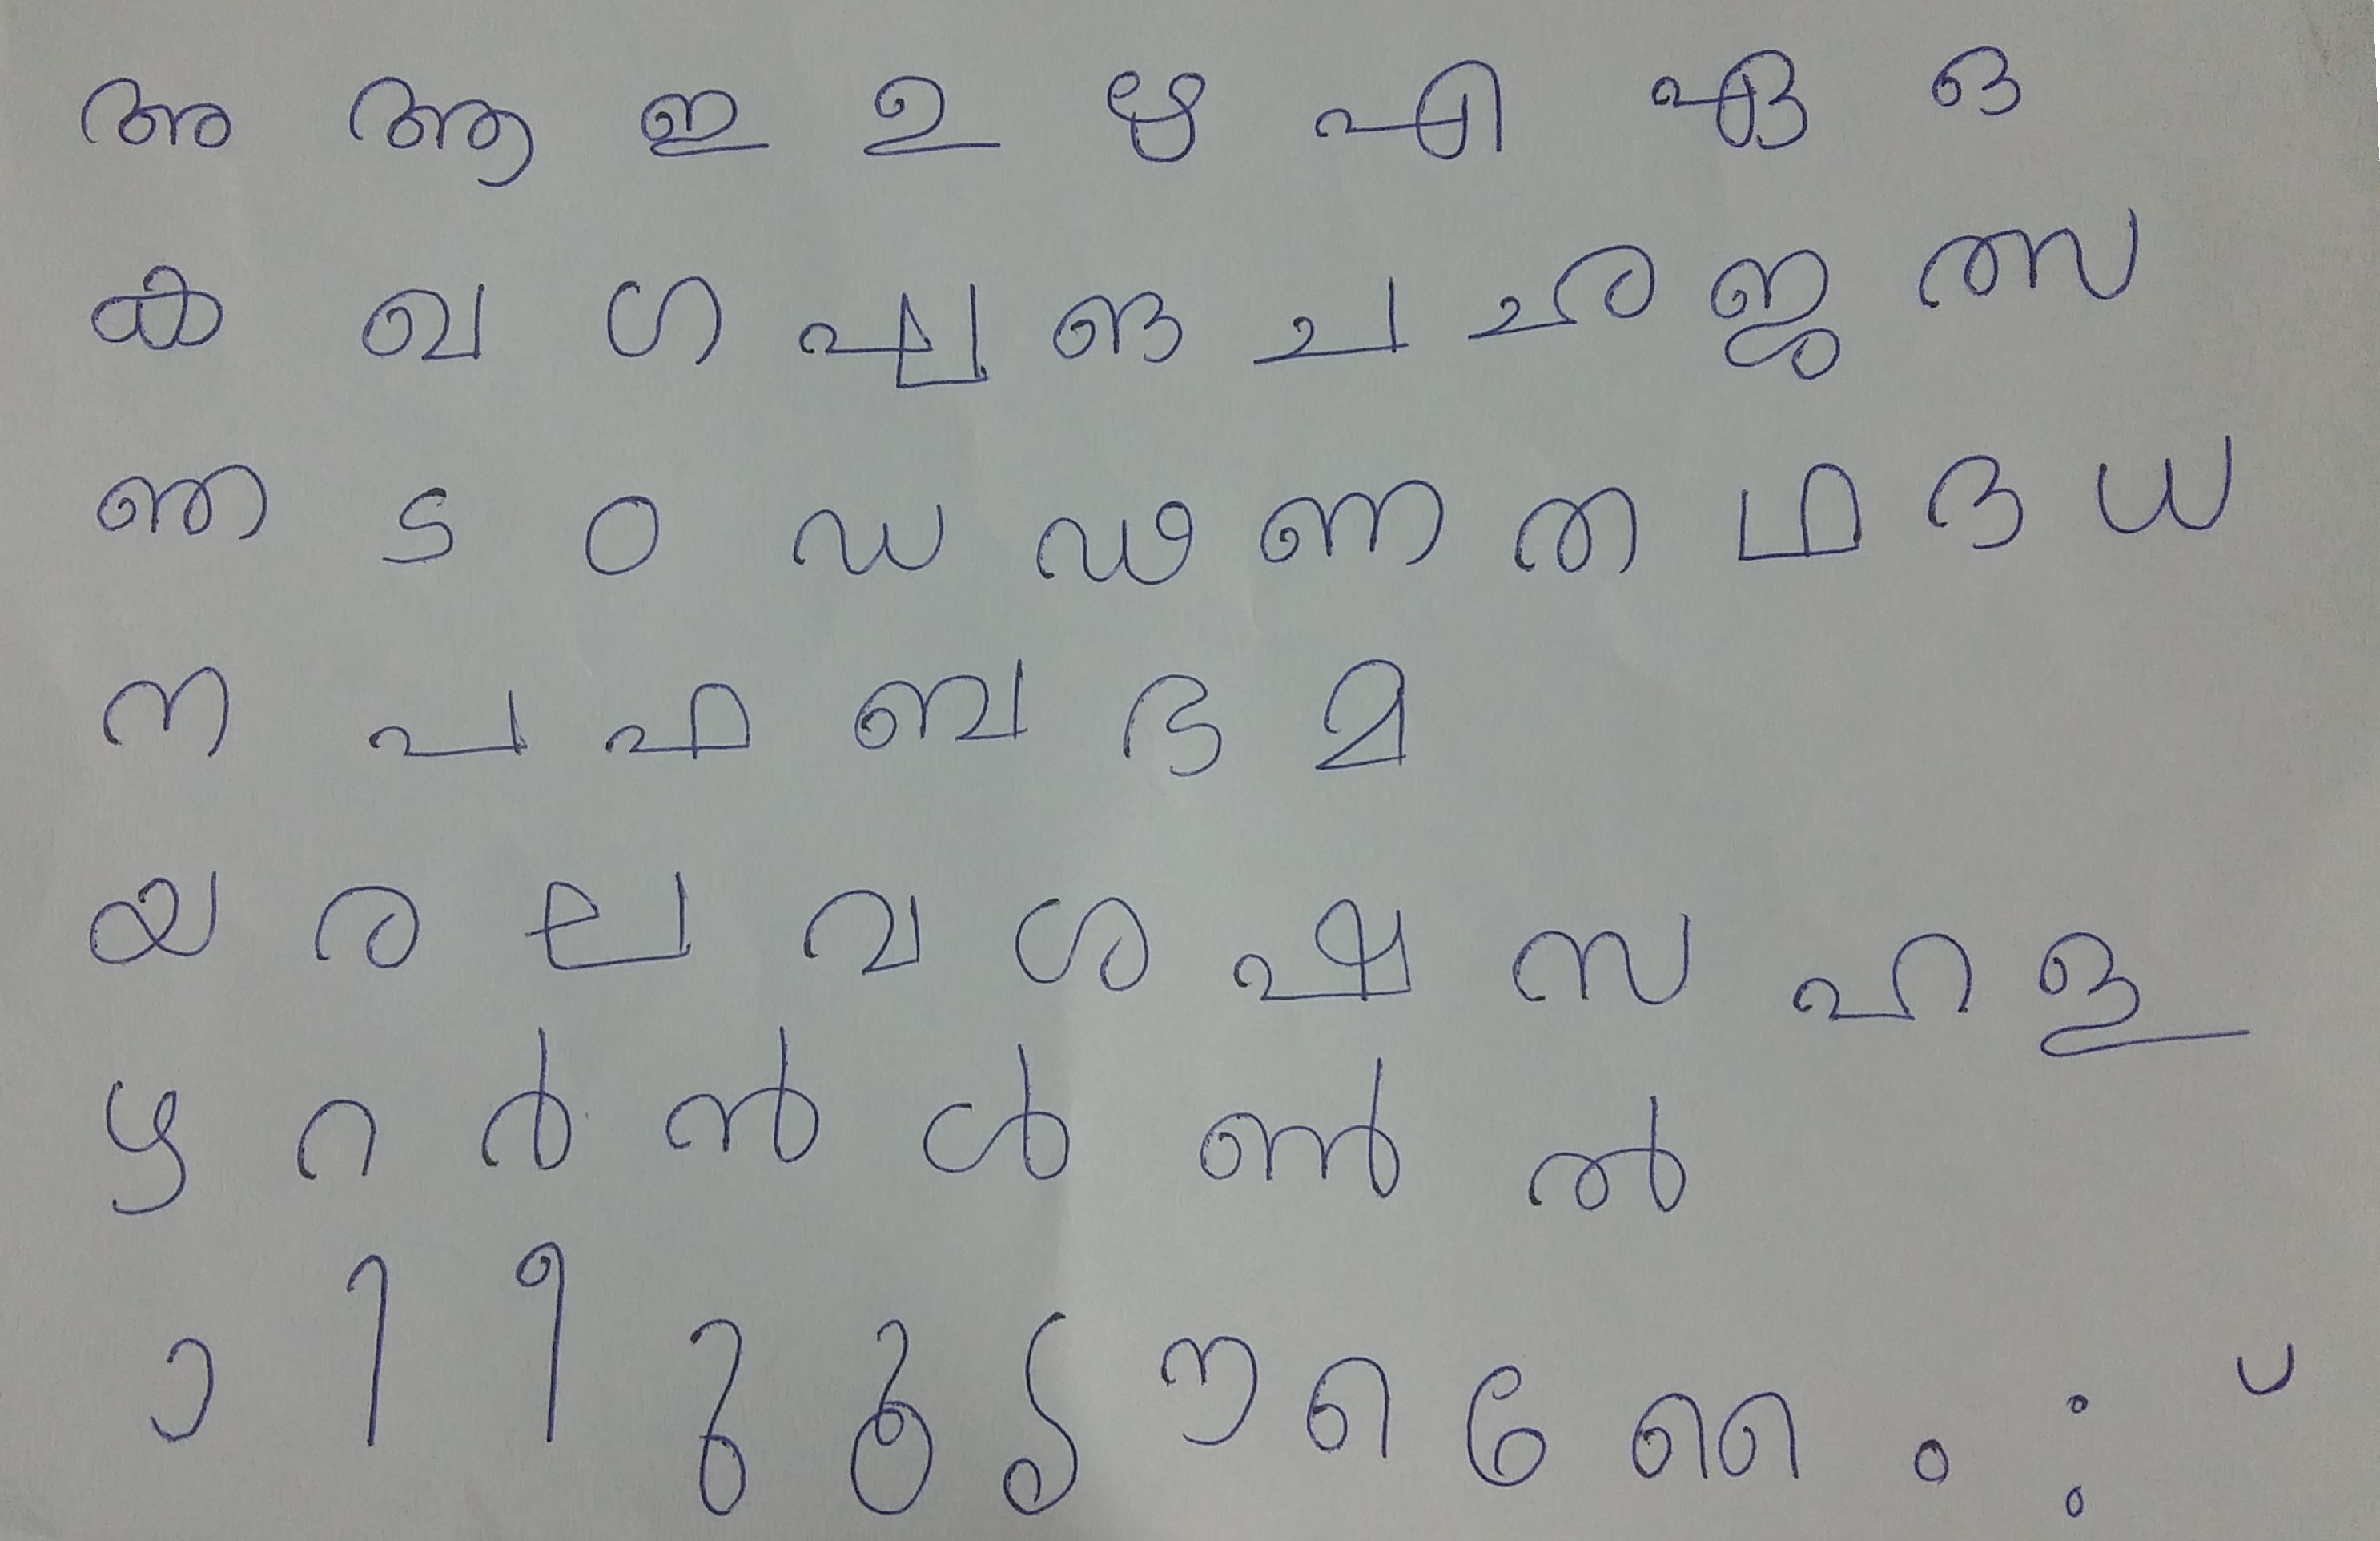 അ ആ ഇ ഉ ഋ എ ഏ ഒ
ക ഖ ഗ ഘ ങ ച ഛ ജ ഝ
ഞ ട ഠ ഡ ഢ ണ ത ഥ ദ ധ
ന പ ഫ ബ ഭ മ
യ ര ല വ ശ ഷ സ ഹ ള
ഴ റ ർ ൻ ൾ ൺ ൽ
ാ ി ീ ു ൂ ൃ ൗ െ േ ൈ ം ഃ ്